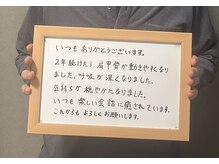 いつもありがとうございます。
2年続けたら肩甲骨が動きやすくなり
ました。呼吸が深くなりました。
気持ちが穏やかになりました。
いつも楽しい会話に癒されています。
これからもよろしくお願いします。